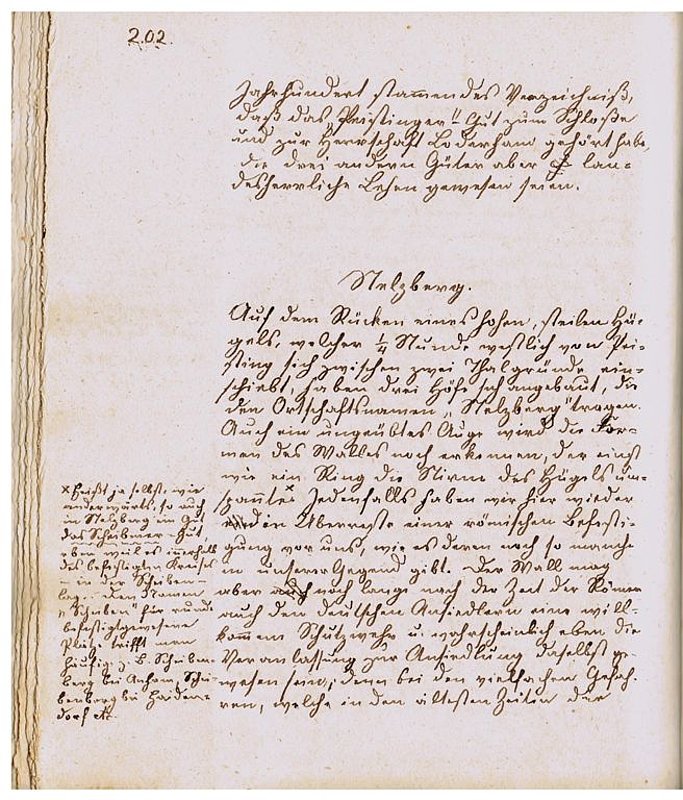 202.
Jahrhundert stammendes Verzeichniß,
daß das „Peistinger" Gut zum Schloße
und zur Herrschaft Loderham gehört habe,
die drei andern Güter aber lan-
desherrliche Lehen gewesen seien.
Stelzberg.
Auf dem Rücken eines hohen, steilen Hü-
gels, welcher 1/4 Stunde westlich von Pei-
sting sich zwischen zwei Thalgründe ein-
schiebt, haben drei Höfe sich angebaut, die
den Ortschaftsnamen „Stelzberg" tragen.
Auch ein ungeübtes Auge wird die For-
men des Walles noch erkennen, der einst
wie ein Ring die Stirne des Hügels um-
spannte.× Jedenfalls haben wir hier wieder
den Überrest einer römischen Befesti-
gung vor uns, wie es deren noch so manche
in unserer Gegend gibt. Der Wall mag
aber auch noch lange nach der Zeit der Römer
auch den deutschen Ansiedlern eine will-
kommene Schutzwehr u. wahrscheinlich eben die
Veranlassung zur Ansiedlung daselbst ge-
wesen sein; denn bei den vielfachen Gefah-
ren, welche in den ältesten Zeiten der
× Heißt ja selbst, wie
anderwärts, so auch
in Stelzberg ein Gut
das Scheibmer-Gut,
eben weil es innerhalb
des befestigten Kreises
– in der Scheiben –
lag. – Den Namen
„Scheiben" für runde
befestigt gewesene
Plätze trifft man
häufig z. B. Scheiben-
berg bei Scheu-
benberg bei Haiden-
dorf etc.